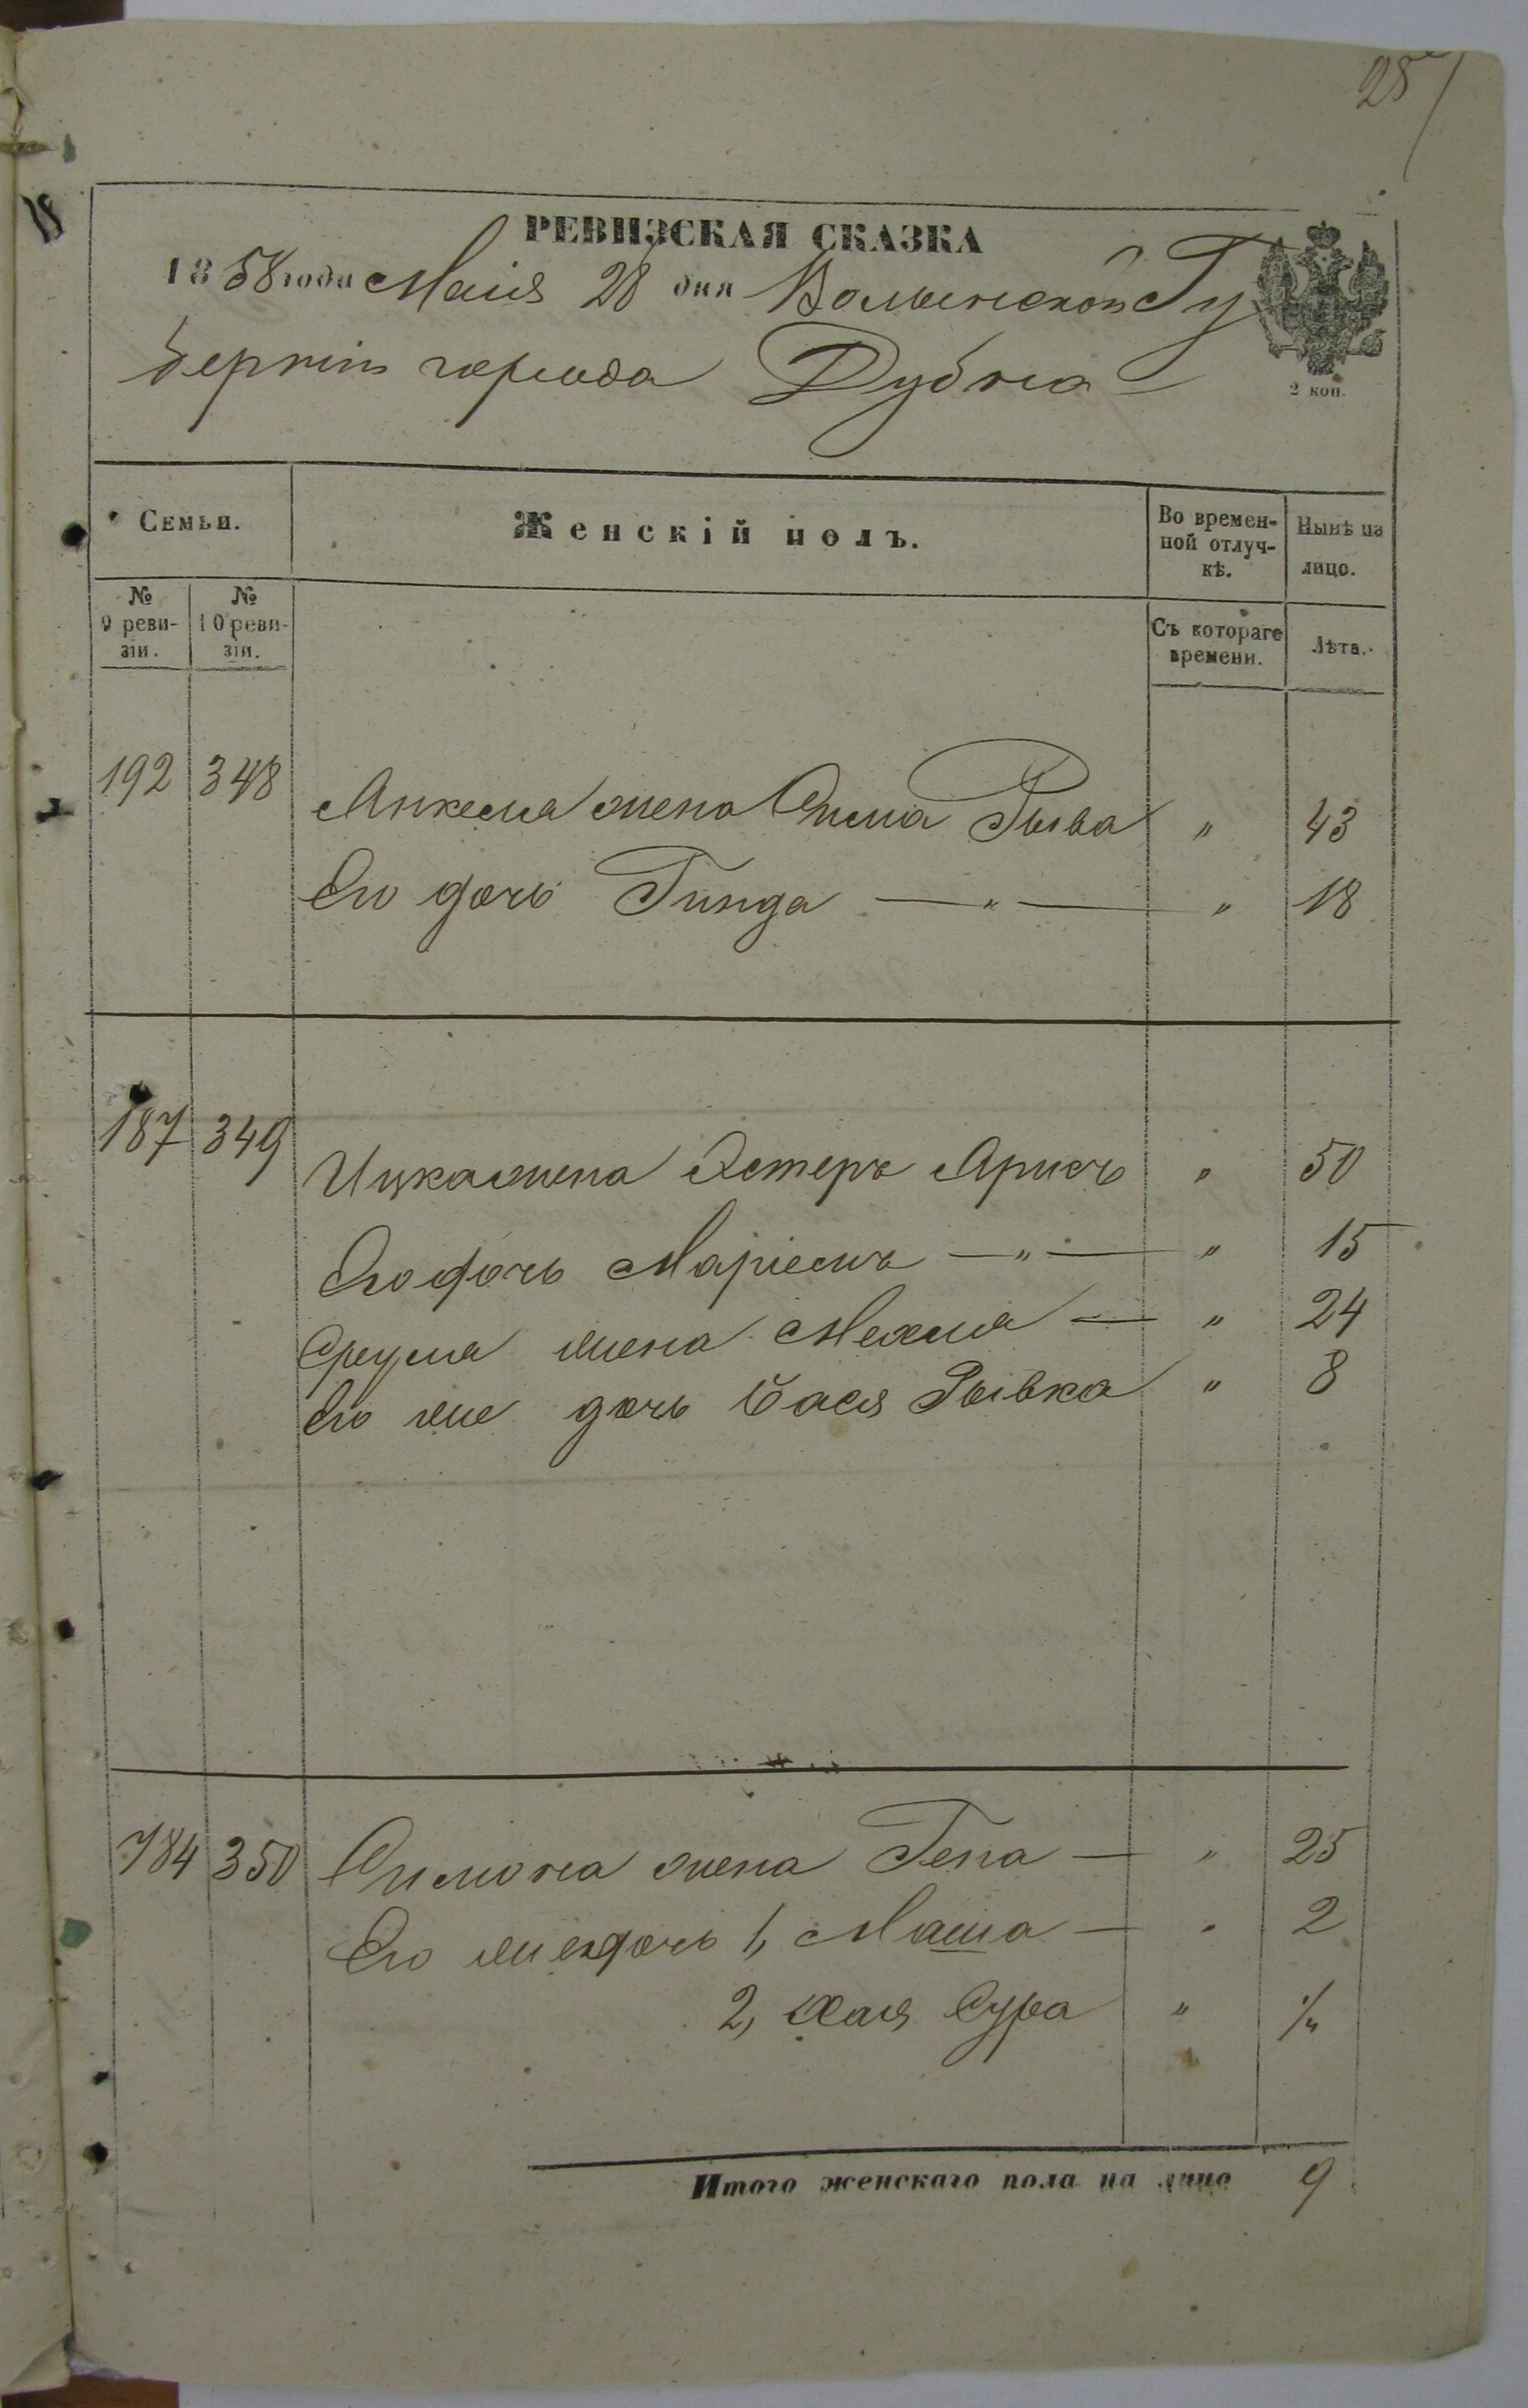 28
РЕВИЗСКАЯ СКАЗКА
1858 года Маія 28 дня Волынской Гу
берніи города Дубна
2 коп.
Семьи.
Женскій полъ.
Во времен-
ной отлуч-
кѣ.
Нынѣ на
лицо.
№
9 реви-
зіи.
№
10 реви-
зіи.
Съ котораго
времени.
Лѣта.
192 348 Анкеля жена Сима Рыва " 43
Его дочь Гинда — " — " 18
187 349 Ицка жена Эстеръ " 50
Его дочь Маріемъ — " — " 15
Сруля жена Мехля — " 24
Его же дочь Бася Рывка " 8
184 350 Симона жена Гена — " 25
Его же дочь 1, Маша — " 2
2, Хая Сура "
Итого женскаго пола на лицо 9